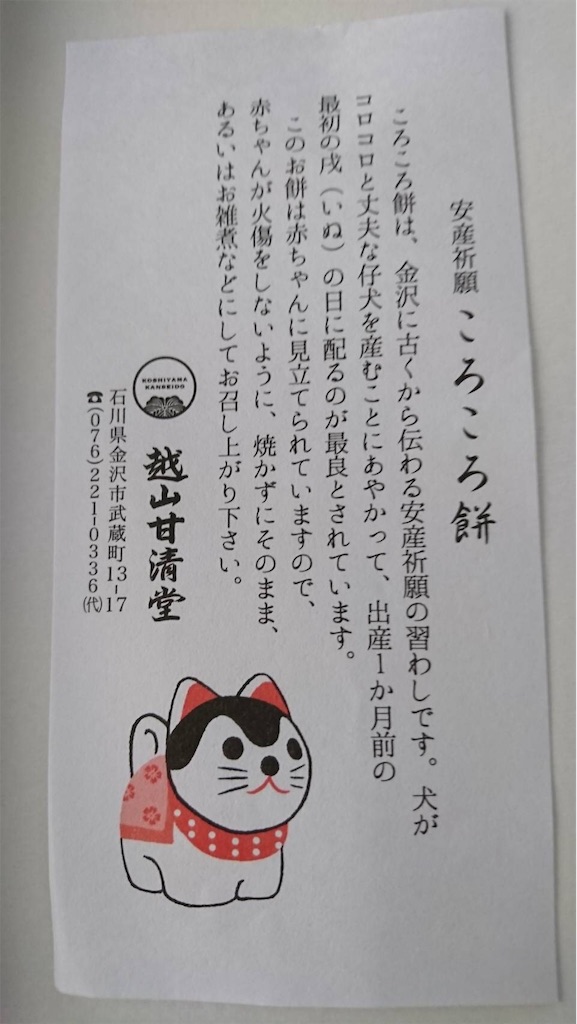 安産祈願 ころころ餅
ころころ餅は、金沢に古くから伝わる安産祈願の習わしです。犬が
コロコロと丈夫な仔犬を産むことにあやかって、出産1か月前の
最初の戌（いぬ）の日に配るのが最良とされています。
このお餅は赤ちゃんに見立てられていますので、
赤ちゃんが火傷をしないように、焼かずにそのまま、
あるいはお雑煮などにしてお召し上がり下さい。
KOSHIYAMA
KANSEIDO
越山甘清堂
石川県金沢市武蔵町13-17
☎(076)221-0336㈹